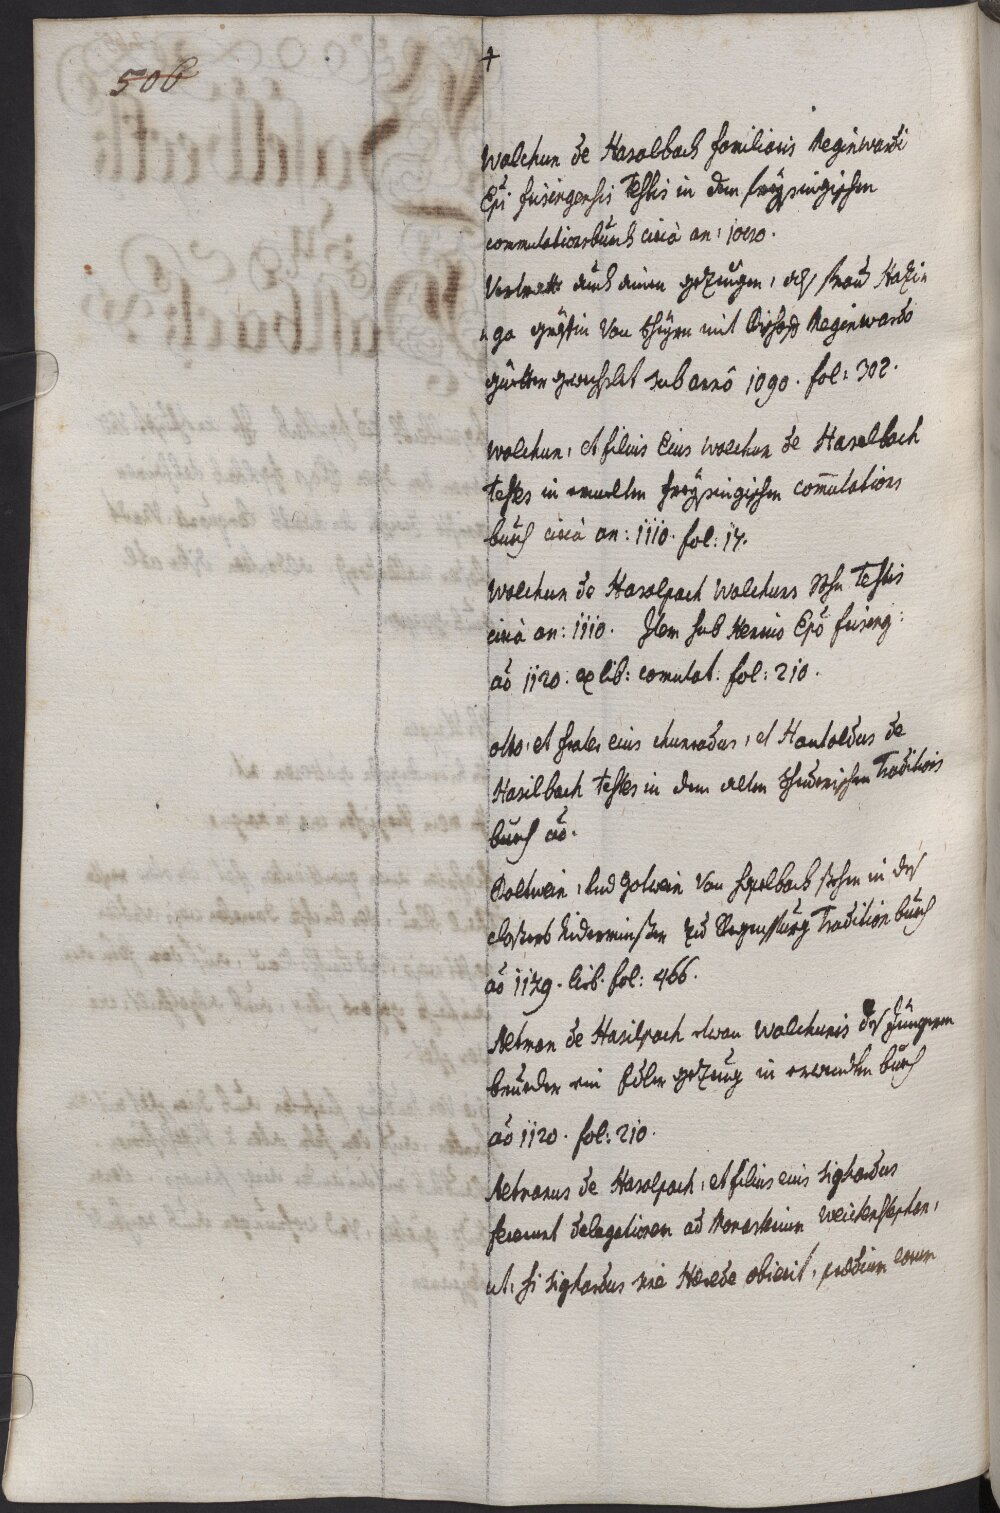 506
+
Walchun de Haselbach familiaris Reginwardi
Epi frisingensis Testis in dem freÿsingischen
commutationsbuech circà an:
Vertratt auch ainen gezeügen, als Frau Hazi=
=ga gräffin Von Scheÿrn mit Bischoff Reginwardo
güetter gewechslet sub annô 1090. fol: 302.
Walchun, et filius eius Walchun de Haselbach
testes in ermelten freÿsingischen comutations
buech circà an: 1110. fol: 14.
Walchun de Haselpach Walchuns Sohn Testis
circà an: 1110. Item sub Henrico Epõ frising:
aõ 1120. ex lib: comutat. fol: 210.
otto, et frater eius chunradus, et Hartoldus de
Hasilbach testes in dem alten Traditions
buech aõ.
Poltwein, und Gotwein Von stehen in des
closters Nidermünster zu Regenspurg Tradition buech
aõ 1179. lib. fol: 466.
Aetman de Hasilpach etwan Walchunis des Jüngern
brueder ein Edler gezeug in ernendten buech
aõ 1120. fol: 210.
Aetmanus de Haselpach, et filius eius Sighardus
fecerunt delegationem ad Monasterium Weichenstephan,
ut, si Sighardus sinè Hærede obierit, prædium eorum